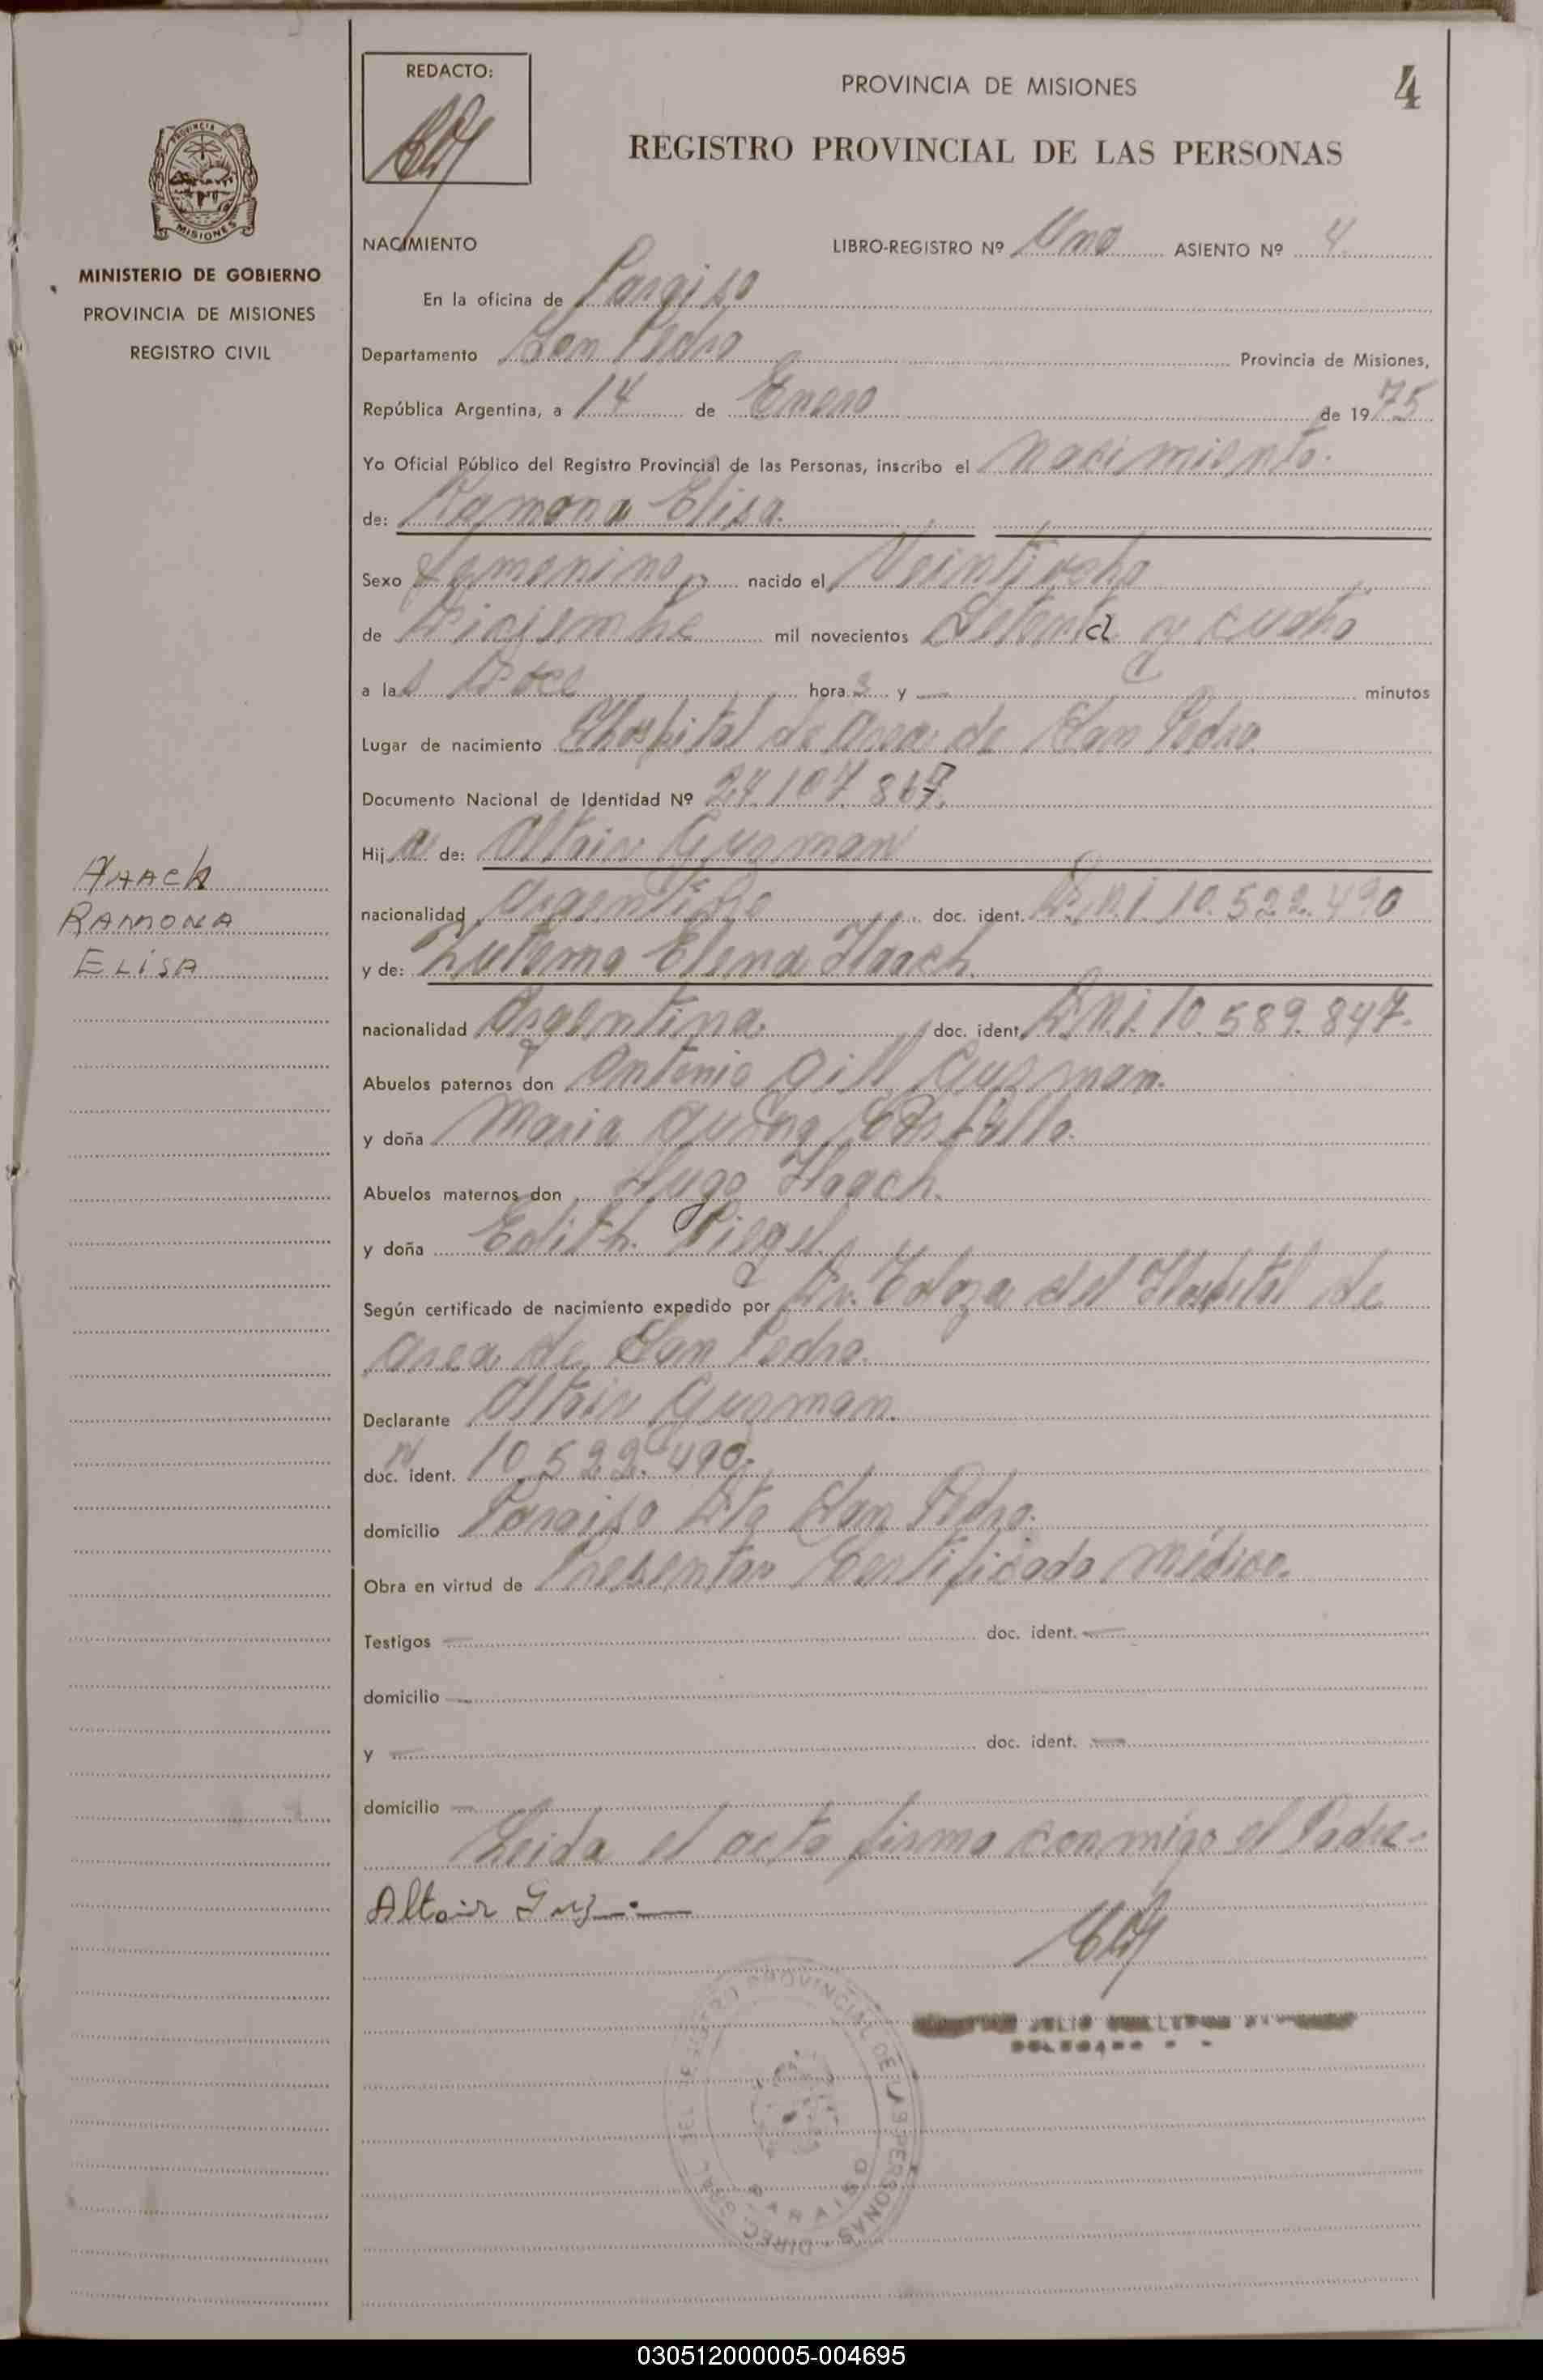 REDACTO:
PROVINCIA DE MISIONES
4
REGISTRO PROVINCIAL DE LAS PERSONAS
PROVINCIA DE
MISIONES
MINISTERIO DE GOBIERNO
PROVINCIA DE MISIONES
REGISTRO CIVIL
NACIMIENTO LIBRO-REGISTRO Nº Uno ASIENTO Nº 4
En la oficina de Paraiso
Departamento San Pedro Provincia de Misiones,
República Argentina, a 14 de Enero de 1975
Yo Oficial Público del Registro Provincial de las Personas, inscribo el nacimiento.
de: Ramona Elisa.
Sexo femenino nacido el Veintiocho
de Diciembre mil novecientos Setenta y cuatro
a las Doce horas y — minutos
Lugar de nacimiento Hospital de Area de San Pedro
Documento Nacional de Identidad Nº 24.107.867.
Hija de: Altair Gusman
nacionalidad Argentino doc. ident. D.N.I. 10.522.490
y de: Elena Haach.
nacionalidad Argentina. doc. ident. D.N.I. 10.589.847.
Abuelos paternos don Antonio Gill Gusman.
y doña Maria
Abuelos maternos don Hugo Haach.
y doña Edith
Según certificado de nacimiento expedido por Dr. del Hospital de
area de San Pedro.
Declarante Altair Gusman.
doc. ident. 10.522.490.
domicilio Paraiso Dto San Pedro.
Obra en virtud de Presentar Certificado Médico.
Testigos — doc. ident. —
domicilio —
y — doc. ident. —
domicilio —
Leida el acta firma conmigo el Padre-
Altair
HAACH
RAMONA
ELISA
JULIO
PROVINCIAL DE LAS PERSONAS
PARAISO
030512000005-004695